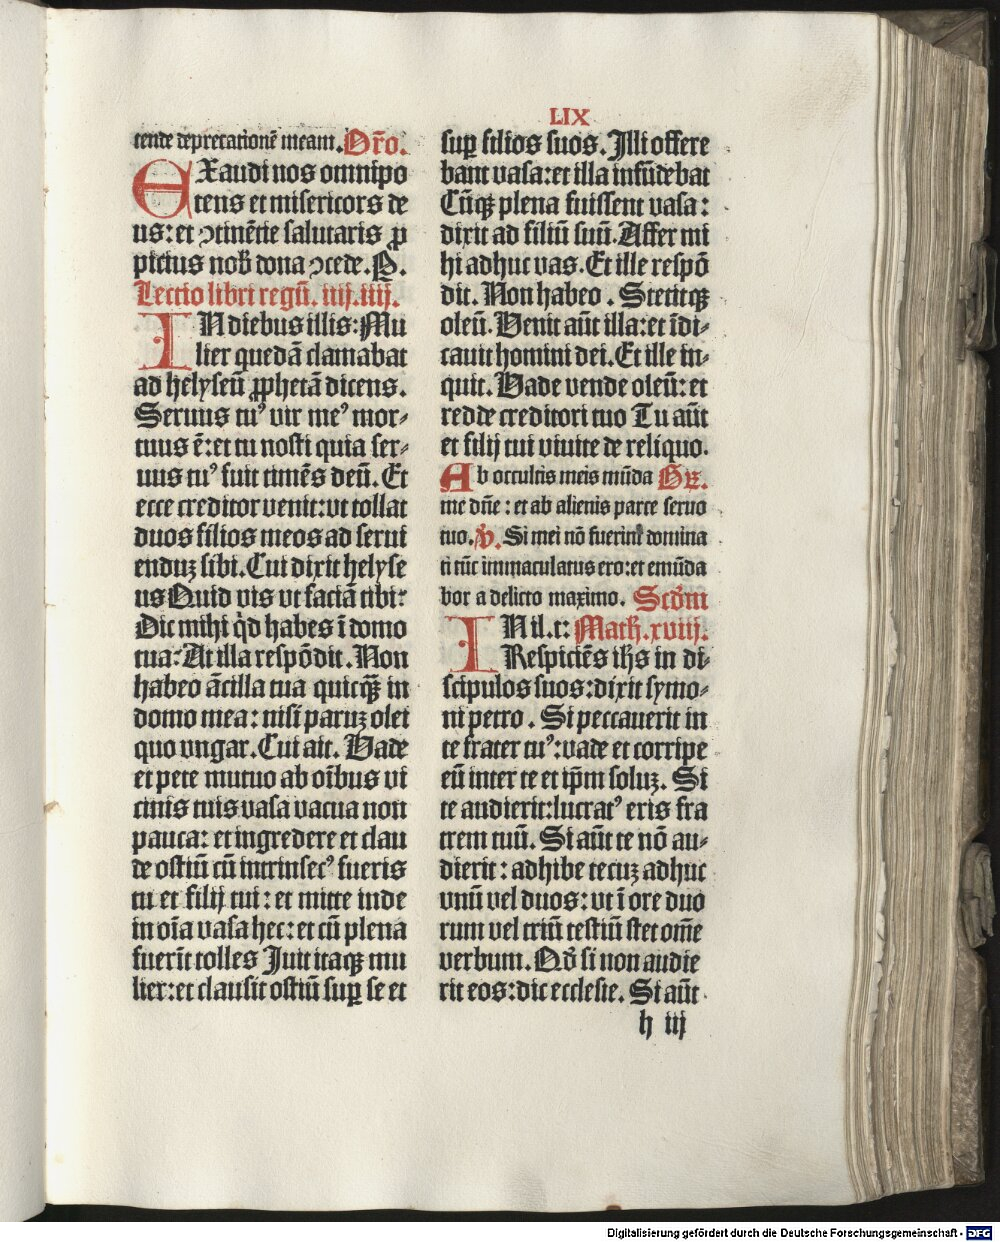 LIX
tende deprecationē meam. Or̄o.
EXaudi nos omnipo
tens et misericors de
us: et ↄtinētie salutaris ꝓ
pitius nob̄ dona ↄcede. P.
Lectio libri regū. iiij. iiij.
IN diebus illis: Mu
lier quedā clamabat
ad helyseū ꝓphetā dicens.
Seruus tuꝰ vir meꝰ mor⸗
tuus ē: et tu nosti quia ser⸗
uus tuꝰ fuit timēs deū. Et
ecce creditor venit: vt tollat
duos filios meos ad serui
enduꝫ sibi. Cui dixit helyse
us Quid vis vt faciā tibi?
Dic mihi qd̓ habes ī domo
tua? At illa respōdit. Non
habeo ācilla tua quicqꝫ̄ in
domo mea: nisi paruꝫ olei
quo vngar. Cui ait. Vade
et pete mutuo ab oībus vi
cinis tuis vasa vacua non
pauca: et ingredere et clau
de ostiū cū intrinsecꝰ fueris
tu et filij tui: et mitte inde
in oīa vasa hec: et cū plena
fuerīt tolles Iuit itaqꝫ mu
lier: et clausit ostiū suꝑ se et
suꝑ filios suos. Illi offere
bant vasa: et illa infūdebat
Cūqꝫ plena fuissent vasa:
dixit ad filiū suū. Affer mi
hi adhuc vas. Et ille respō
dit. Non habeo. Stetitqꝫ
oleū. Venit aūt illa: et īdi⸗
cauit homini dei. Et ille in⸗
quit. Vade vende oleū: et
redde creditori tuo Tu aūt
et filij tui viuite de reliquo.
Ab occultis meis mūda Gꝛ.
me dn̄e: et ab alienis parce seruo
tuo. V̓. Si mei nō fuerint domina
ti tūc immaculatus ero: et emūda
bor a delicto maximo. Scd̓m
IN il. t: Math̄. xviij.
Respiciēs ih̄s in di⸗
scipulos suos: dixit symo⸗
ni petro. Si peccauerit in
te frater tuꝰ: vade et corripe
eū inter te et ip̄m soluꝫ. Si
te audierit: lucratꝰ eris fra
trem tuū. Si aūt te nō au⸗
dierit: adhibe tecuꝫ adhuc
vnū vel duos: vt ī ore duo
rum vel triū testiū stet om̄e
verbum. Qd̓ si non audie
rit eos: dic ecclesie. Si aūt
h iij
Digitalisierung gefördert durch die Deutsche Forschungsgemeinschaft - DFG